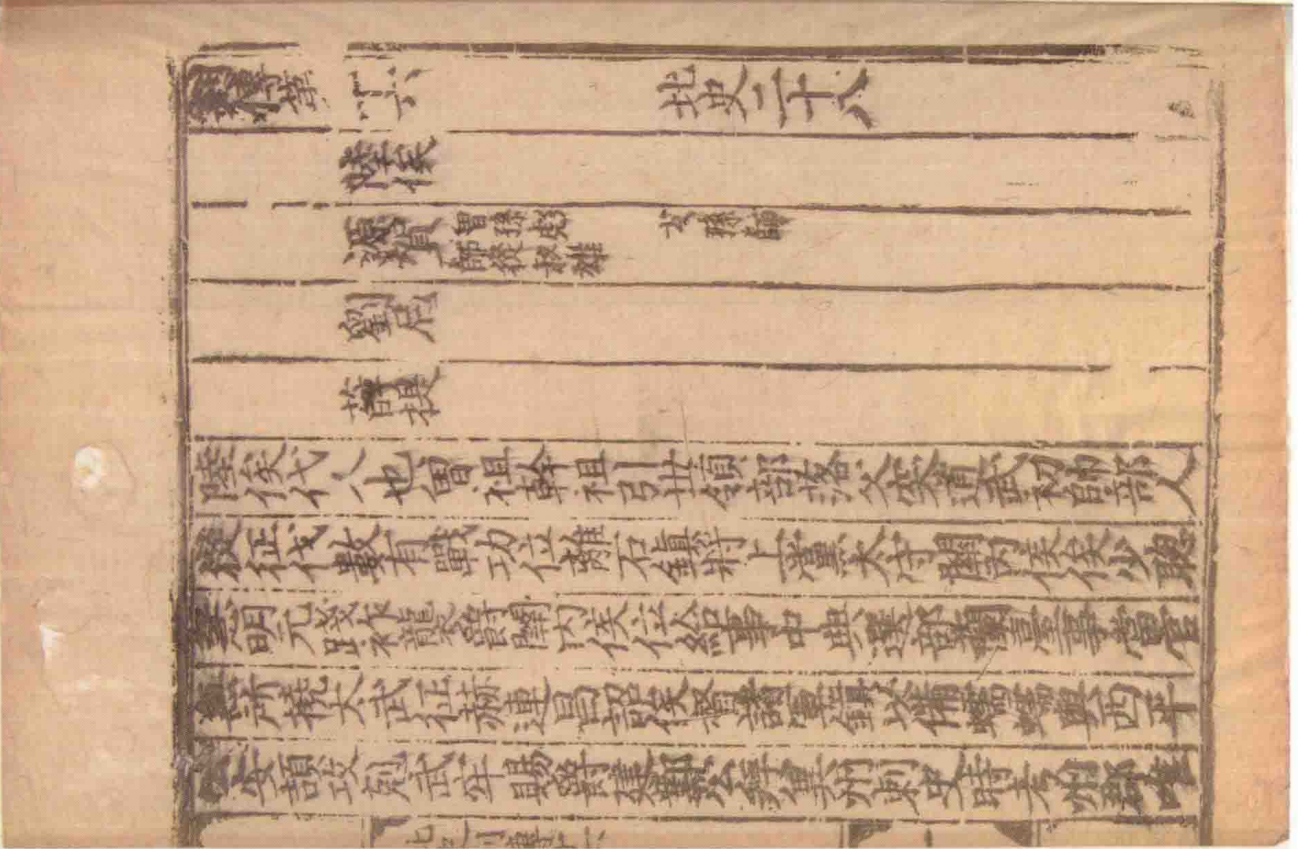 列傳第十六 北史二十八
陸俟
源賀 曾孫彪 玄孫師
師從叔雄
劉尼
薛提
陸俟代人也曾祖幹祖引世領部落父突道武初帥部人
從征伐數有戰功位離石鎮將上黨太守關內侯俟少聰
慧明元踐祚襲爵關內侯位給事中典選部蘭臺事當官
無所撓太武征赫連昌詔俟督諸軍鎮以備蠕蠕與西平
公安頡攻剋武牢賜爵建鄴公拜冀州刺史時考州郡唯